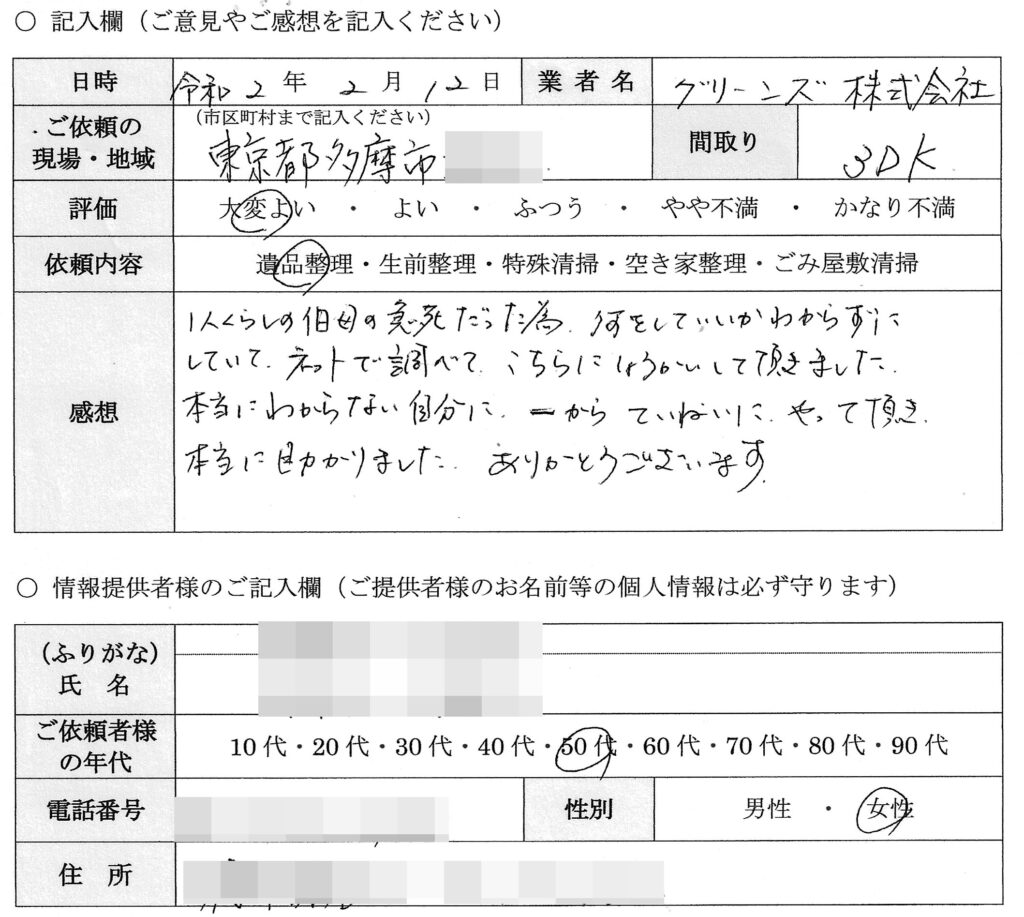 ○ 記入欄（ご意見やご感想を記入ください）
日時 令和2年2月12日 業者名 グリーンズ株式会社
（市区町村まで記入ください）
ご依頼の現場・地域 東京都多摩市 間取り 3DK
評価 大変よい ・ よい ・ ふつう ・ やや不満 ・ かなり不満
依頼内容 遺品整理・生前整理・特殊清掃・空き家整理・ごみ屋敷清掃
感想
1人くらしの伯母の急死だった為、何をしていいかわからずに
していて、ネットで調べて、こちらにしょうかいして頂きました。
本当にわからない自分に、一から ていねいに、やって頂き、
本当に助かりました。 ありがとうございます。
○ 情報提供者様のご記入欄（ご提供者様のお名前等の個人情報は必ず守ります）
（ふりがな）
氏 名
ご依頼者様の年代 10代・20代・30代・40代・50代・60代・70代・80代・90代
電話番号 性別 男性 ・ 女性
住 所